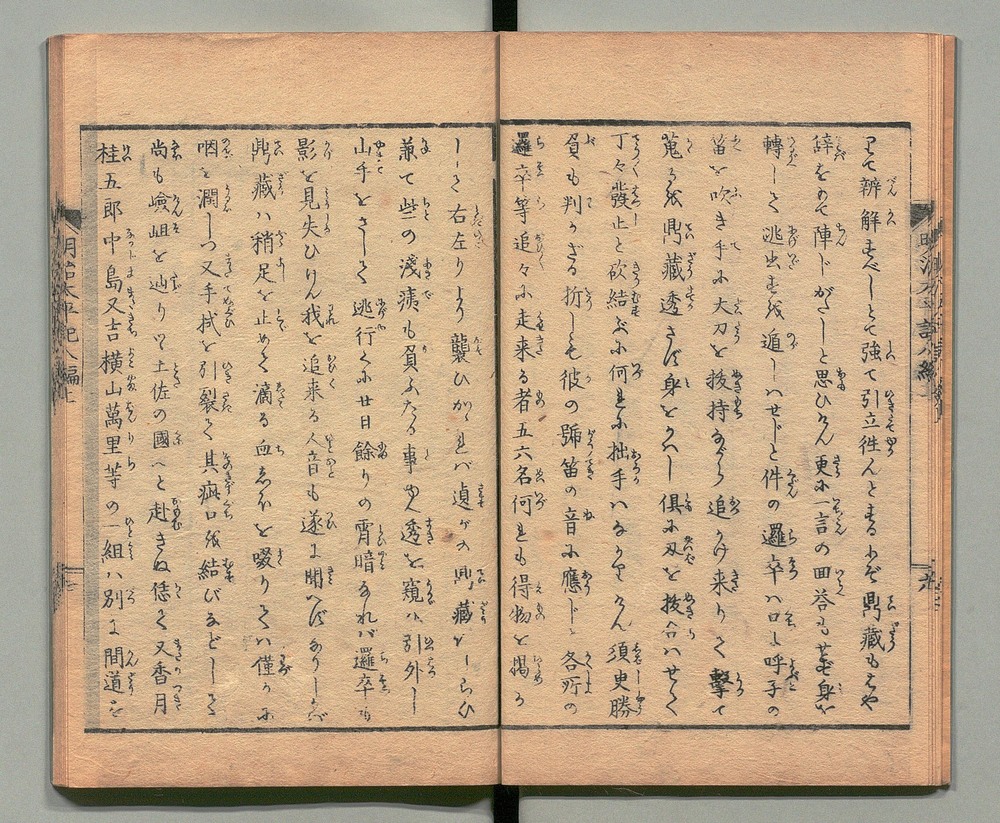 して辨解すべしとて強て引立徃んとするにぞ鼎藏もはや
辞をもて陣じがたしと思ひけん更に言の回答もせず身を
轉して逃出すを遁しはせじと件の邏卒ハ口に呼子の
笛を吹き手に大刀を抜持ながら追かけ来りて撃て
蒐るを鼎藏透さず身をかへし倶に刄を抜合はせて
丁々發止と砍結ぶに何れに拙手ハなかりけん須臾勝
負も判かざる折しも彼の號笛の音に應じて各所の
邏卒等追々に走来る者五六名何れも得物を携へ
して右左りより襲ひかゝれバ貞が鼎藏がしらひ
兼て些の淺痍も負ふたる事ゆゑ透を窺ひ引外し
山手をさして逃行くに廿日餘りの宵暗なれバ邏卒も
影を見失ひけん我を追来る人音も遂に聞へずなりしかば
鼎藏ハ稍足を止めて滴る血しほを啜りてハ僅かに
咽を潤しつ又手拭を引裂て其痍口を結びなどして
尚も嶮岨を辿りつゝ土佐の國へと赴きぬ恁て又香月
桂五郎中島又吉横山萬里等の一組ハ別に間道を
明治太平記八編上